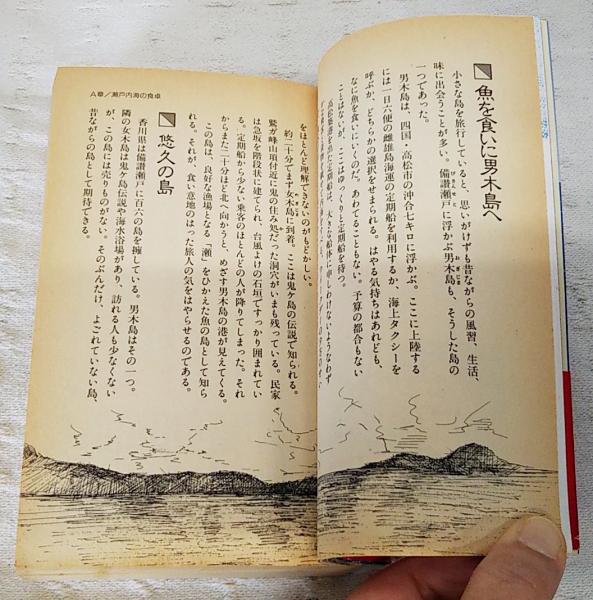 魚を食いに男木島へ
小さな島を旅行していると、思いがけずも昔ながらの風習、生活、
味に出会うことが多い。備讃瀬戸に浮かぶ男木島も、そうした島の
一つであった。
男木島は、四国・高松市の沖合七キロに浮かぶ。ここに上陸する
には一日六便の雌雄島海運の定期船を利用するか、海上タクシーを
呼ぶか、どちらかの選択をせまられる。はやる気持ちはあれども、
なに魚を食いにいくのだ。あわてることもない。予算の都合もない
ことはないが、ここはゆっくりと定期船を待つ。
高松築港を出た定期船は、大きな船体に申しわけないようなわず
A章／瀬戸内海の食卓
をほとんど理解できないのがもどかしい。
約二十分でまず女木島に到着。ここは鬼ヶ島の伝説で知られる。
鷲ガ峰山頂付近に鬼の住み処だった洞穴がいまも残っている。民家
は急坂を階段状に建てられ、台風よけの石垣ですっかり囲まれてい
る。定期船から少ない乗客のほとんどの人が降りてしまった。それ
からまた二十分ほど北へ向かうと、めざす男木島の港が見えてくる。
この島は、良好な漁場となる「瀬」をひかえた魚の島として知ら
れる。それが、食い意地のはった旅人の気をはやらせるのである。
悠久の島
香川県は備讃瀬戸に百六の島を擁している。男木島はその一つ。
隣の女木島は鬼ヶ島伝説や海水浴場があり、訪れる人も少なくない
が、この島には売りものがない。そのぶんだけ、よごれていない島、
昔ながらの島として期待できる。